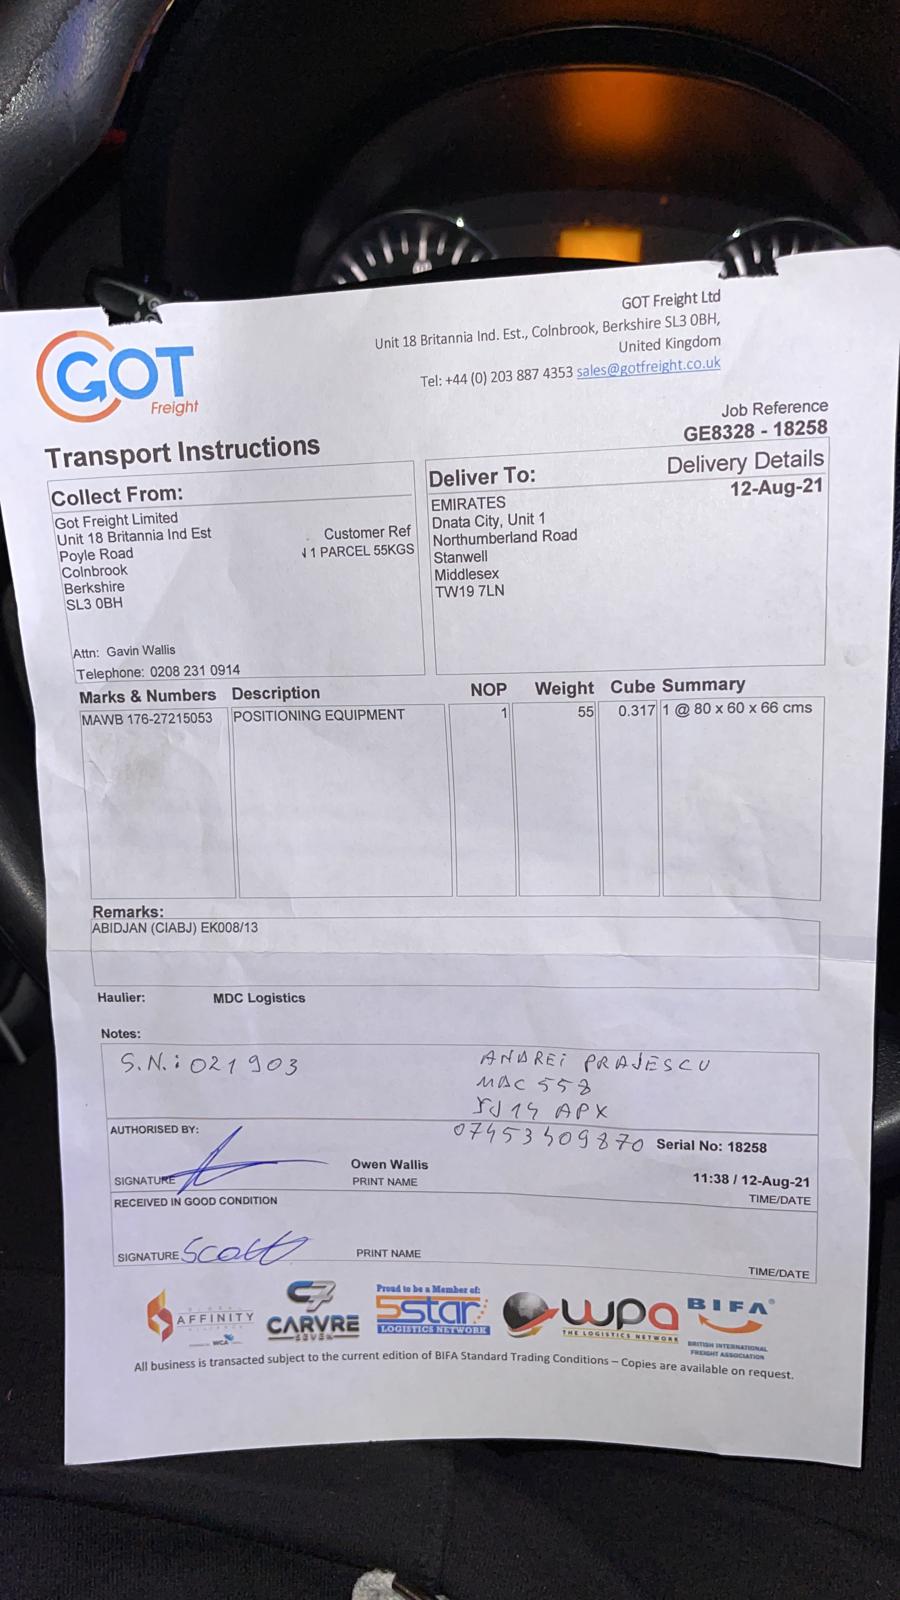 GOT Freight Ltd
Unit 18 Britannia Ind. Est., Colnbrook, Berkshire SL3 0BH,
United Kingdom
Tel: +44 (0) 203 887 4353 sales@gotfreight.co.uk
GOT
Freight
Job Reference
GE8328 - 18258
Transport Instructions
Collect From:
Got Freight Limited
Unit 18 Britannia Ind Est
Poyle Road
Colnbrook
Berkshire
SL3 0BH
Customer Ref
1 PARCEL 55KGS
Attn: Gavin Wallis
Telephone: 0208 231 0914
Deliver To:
Delivery Details
12-Aug-21
EMIRATES
Dnata City, Unit 1
Northumberland Road
Stanwell
Middlesex
TW19 7LN
Marks & Numbers Description NOP Weight Cube Summary
MAWB 176-27215053 POSITIONING EQUIPMENT 1 55 0.317 1 @ 80 x 60 x 66 cms
Remarks:
ABIDJAN (CIABJ) EK008/13
Haulier: MDC Logistics
Notes:
S.N.: 021903
ANDREI PRAJESCU
MDC 558
APX
AUTHORISED BY:
Serial No: 18258
SIGNATURE
Owen Wallis
PRINT NAME
11:38 / 12-Aug-21
TIME/DATE
RECEIVED IN GOOD CONDITION
SIGNATURE Scott
PRINT NAME
TIME/DATE
GLOBAL
AFFINITY
ALLIANCE
WCA
C7
CARVRE
SEVEN
Proud to be a Member of:
5star
LOGISTICS NETWORK
wpa
THE LOGISTICS NETWORK
BIFA
BRITISH INTERNATIONAL
FREIGHT ASSOCIATION
All business is transacted subject to the current edition of BIFA Standard Trading Conditions – Copies are available on request.